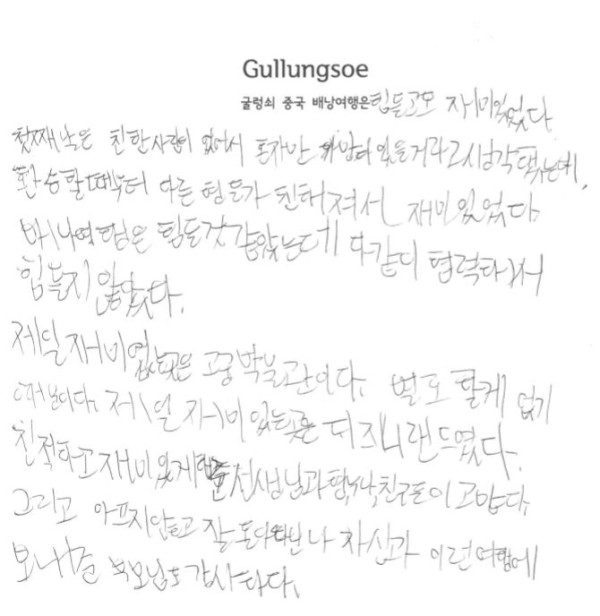 Gullungsoe
굴렁쇠 중국 배낭여행은 힘들고도 재미있었다
첫째낙은 친한사람이 없어서 혼자만 있을거라고 생각했는데,
환승할때부터 다른 팀들과 친해져서 재미있었다.
배낭여행은 힘들것 같았는데 다같이 협력해서
힘들지 않았다.
제일 재미없는곳은 고궁박물관이다. 별로 할게 없기
때문이다. 제일 재미있는곳은 디즈니랜드였다.
친절하고 재미있게 선생님과 형,누나,친구들이 고맙다.
그리고 아프지안고 잘 돌아다닌 나 자신과 이런여행에
보내준 부모님도 감사하다.